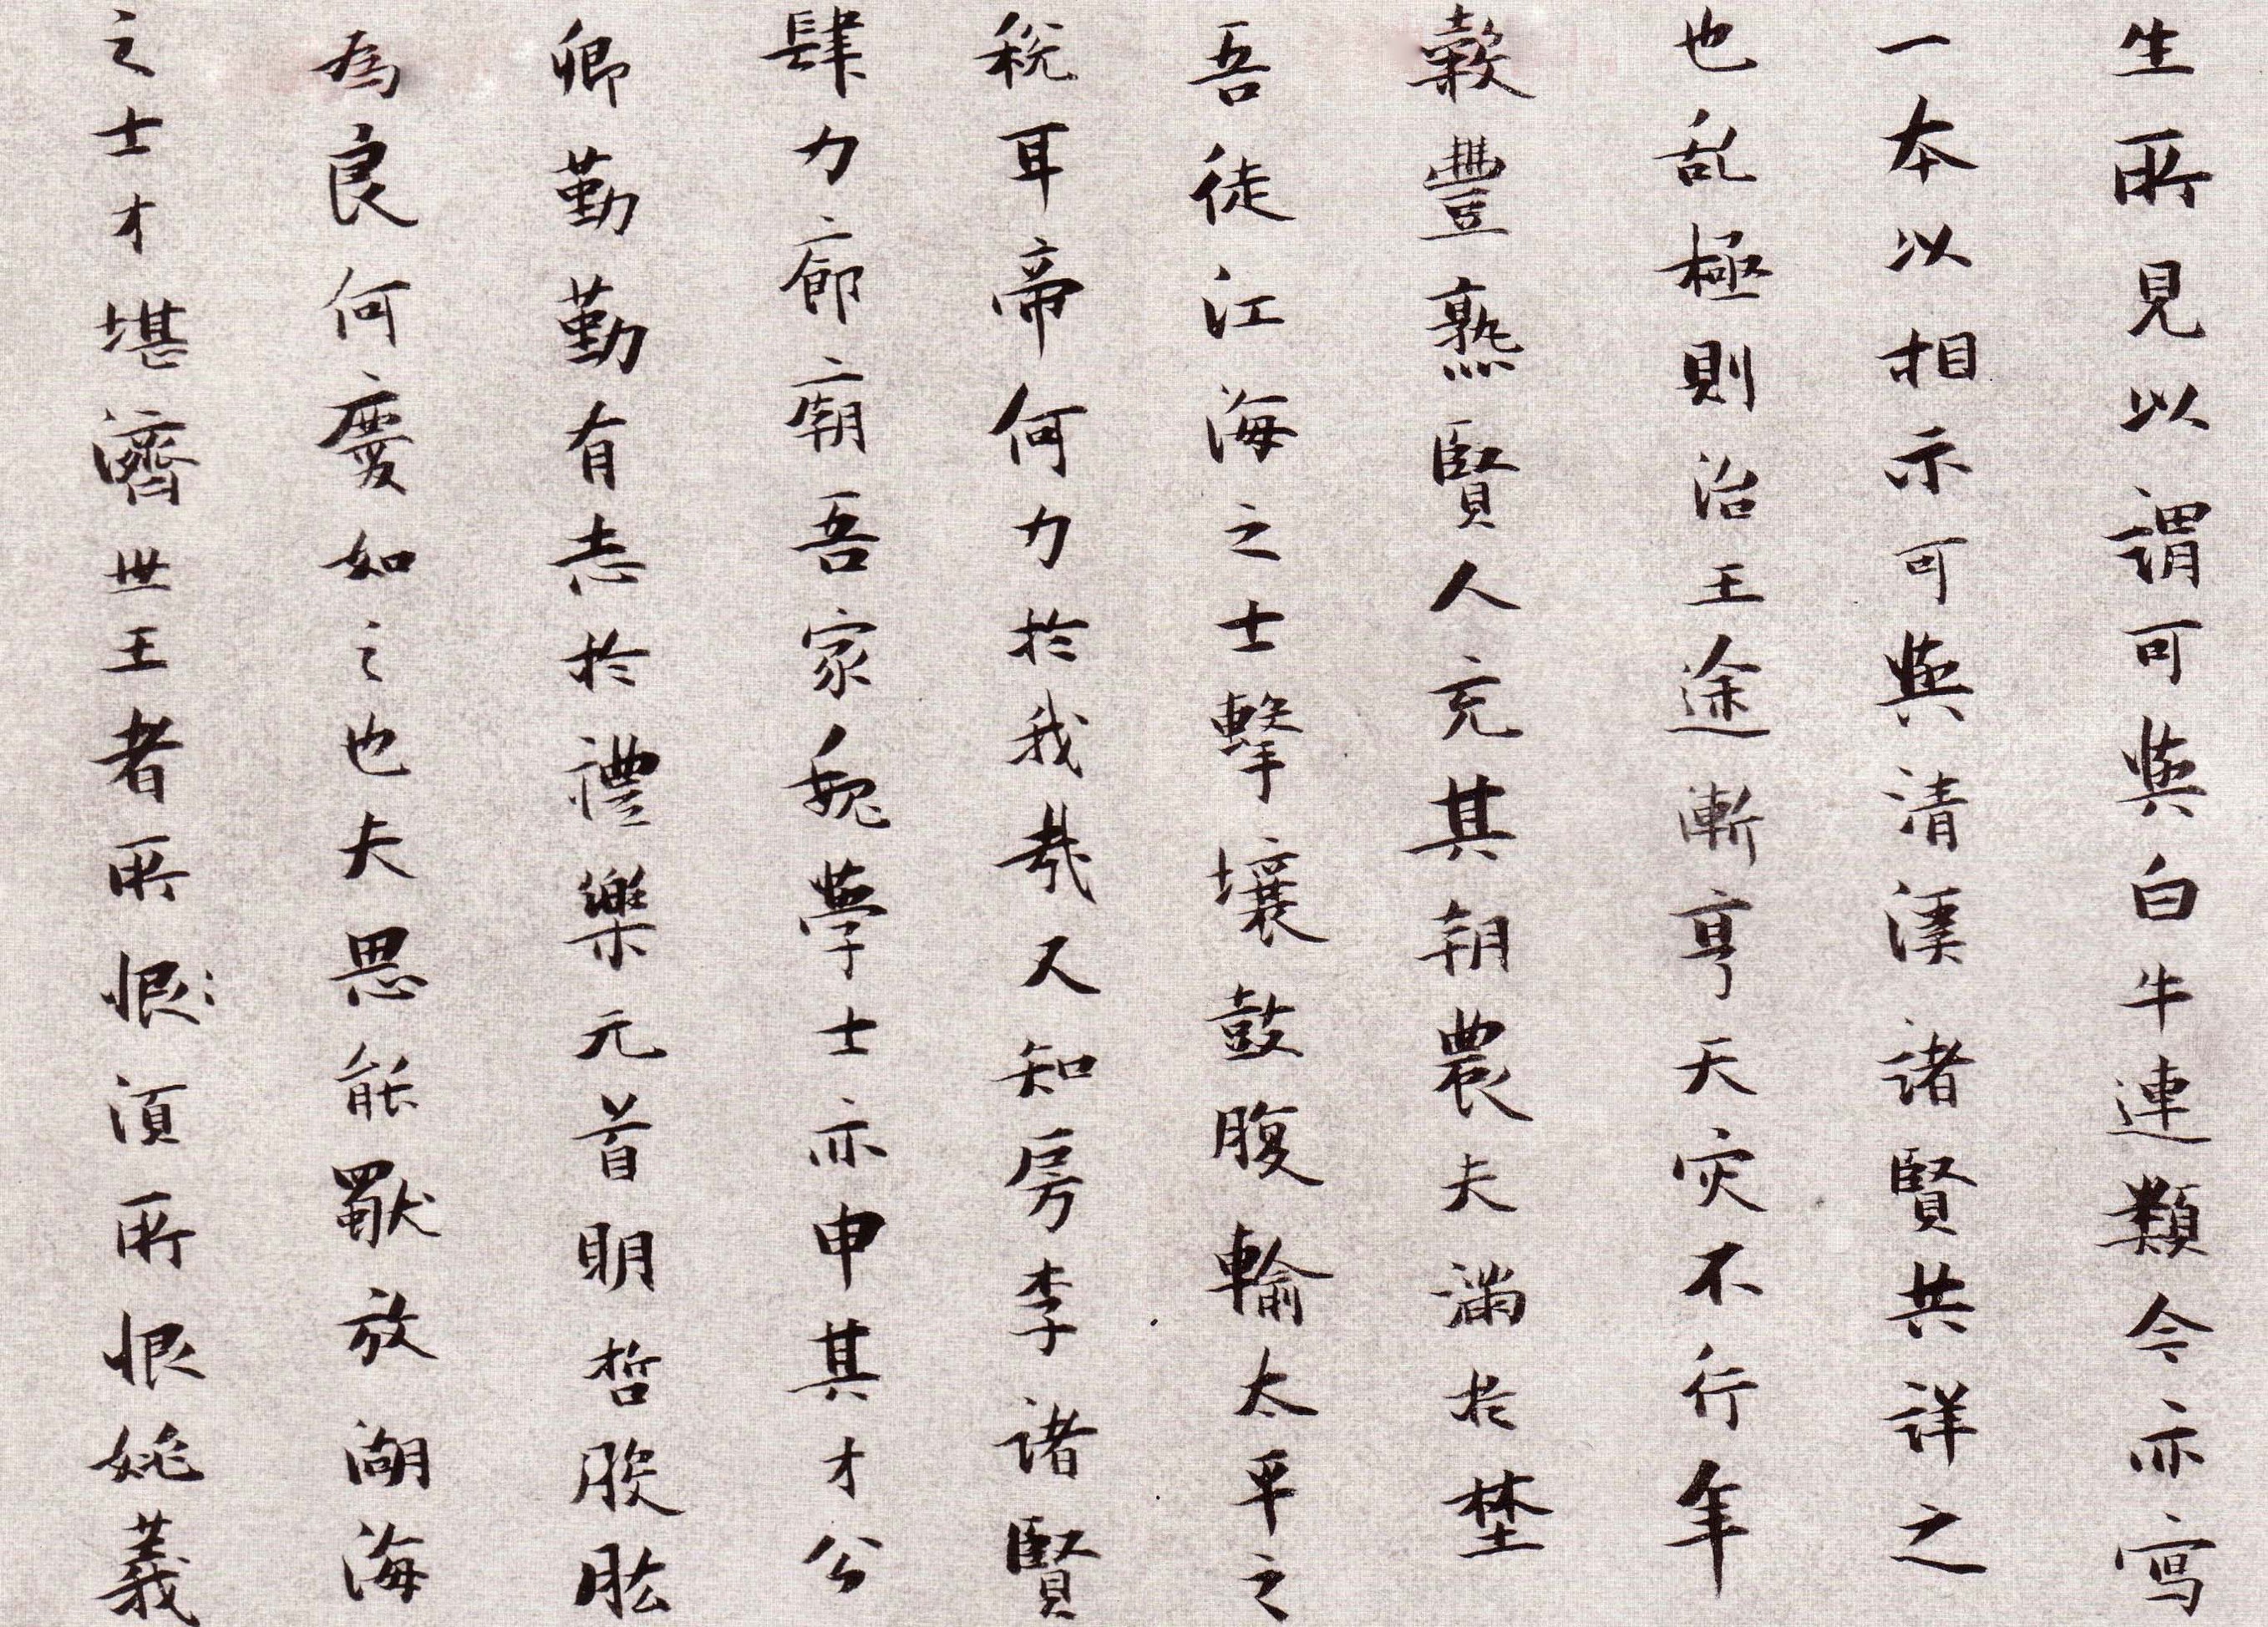 生所見以謂可與白牛連類今亦寫
一本以相示可與清溪諸賢共詳之
也乱極則治王途漸亨天灾不行年
榖豐熟賢人充其朝農夫滿於埜
吾徒江海之士擊壤鼓腹輸太平之
稅耳帝何力於我哉又知房李諸賢
肆力廊廟吾家魏學士亦申其才公
卿勤勤有志於禮樂元首明哲股肱
為良何慶如之也夫思能獸放湖海
之士才堪濟世王者所恨須所恨姚義